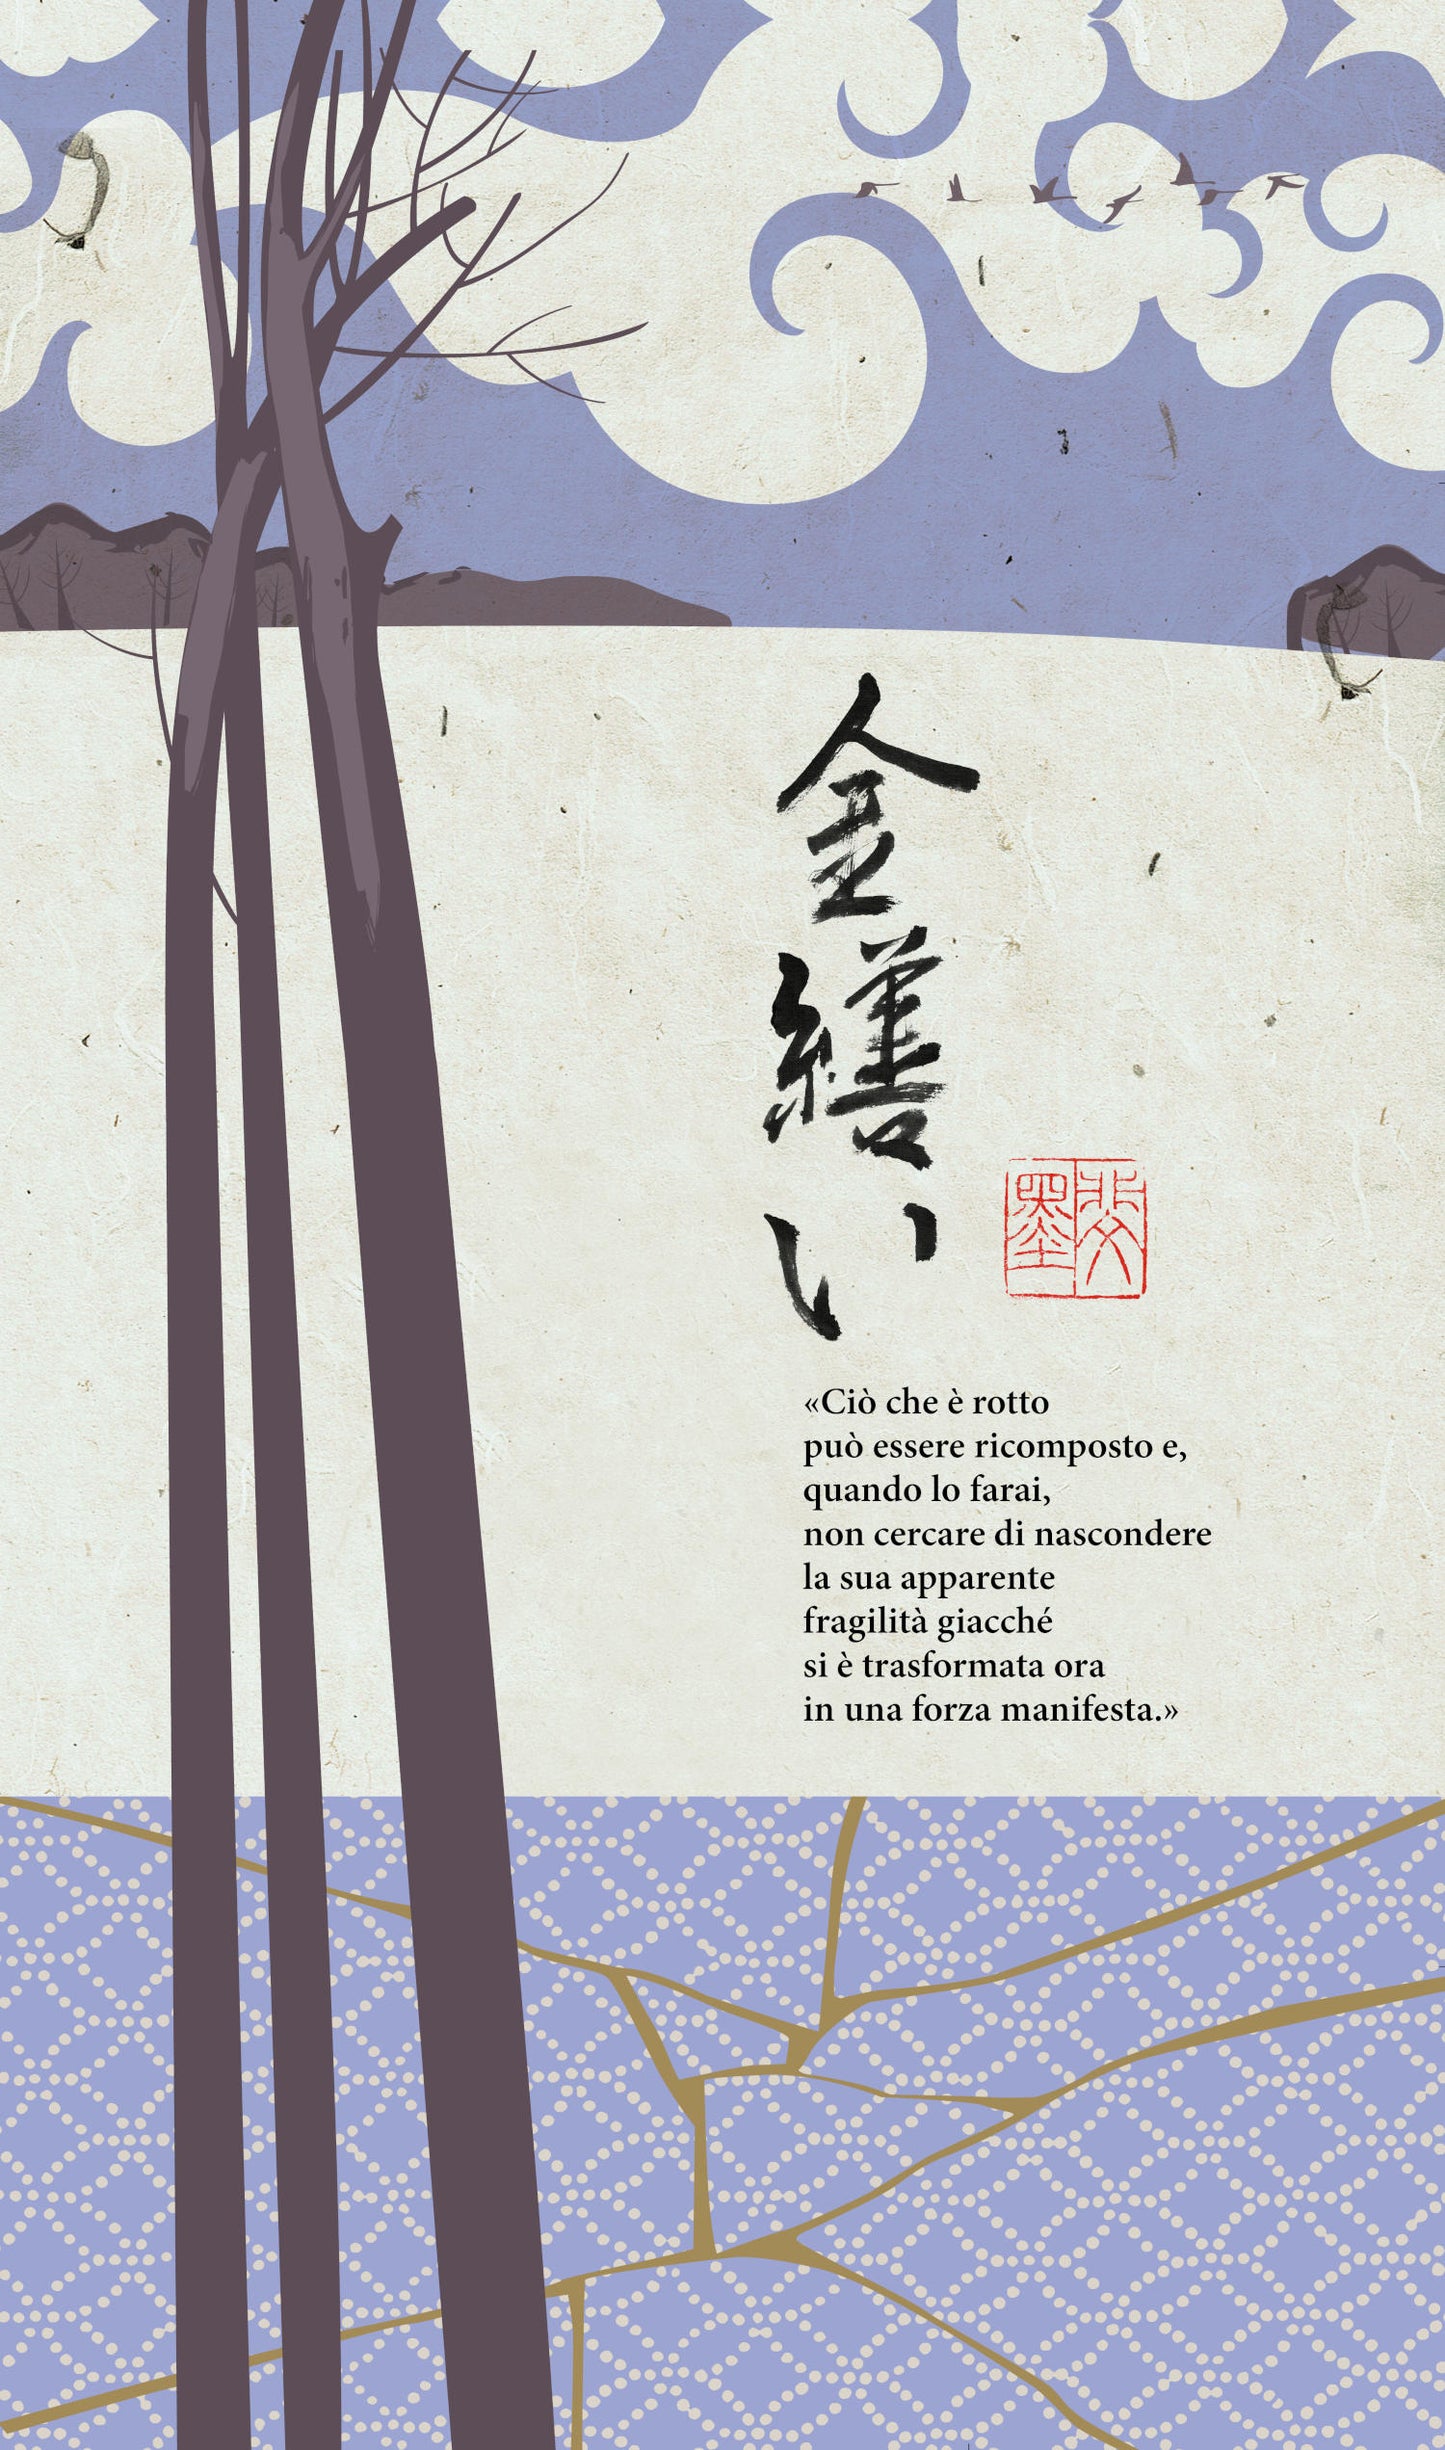 金繕い
斐墨
«Ciò che è rotto
può essere ricomposto e,
quando lo farai,
non cercare di nascondere
la sua apparente
fragilità giacché
si è trasformata ora
in una forza manifesta.»